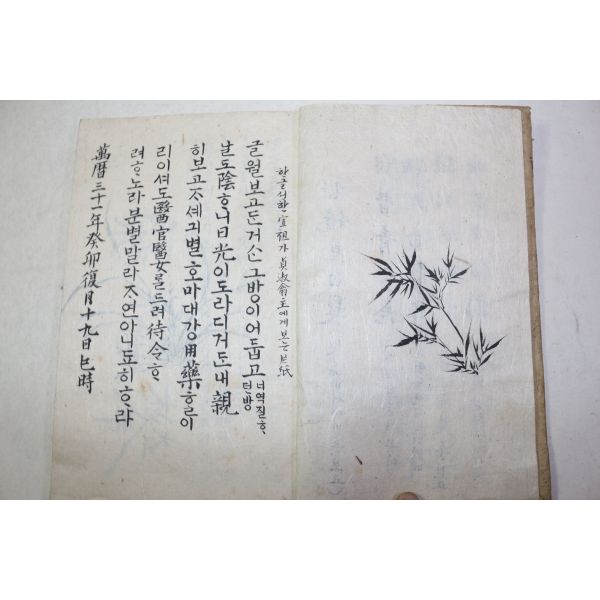 한글서한 宣祖가 貞淑翁主에게 보는 片紙
글월보고든거ᄉᆞᆫ그방이어둡고 너역질ᄒᆞ던방
날도陰ᄒᆞ니日光이도라디거든내親
히보고ᄌᆞ셰긔별호마대강用藥ᄒᆞᆯ이
리이셔도醫官醫女를드려待令ᄒᆞ
려ᄒᆞ노라분별말라ᄌᆞ연아니됴히ᄒᆞ랴
萬曆三十一年癸卯復月十九日巳時